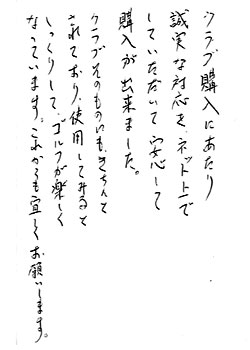 クラブ購入にあたり
誠実な対応を、ネット上で
していただいて安心して
購入が出来ました。
クラブそのものにも、きちんと
されており、使用してみると
しっくりして、ゴルフが楽しく
なっています。これからも宜しくお願いします。